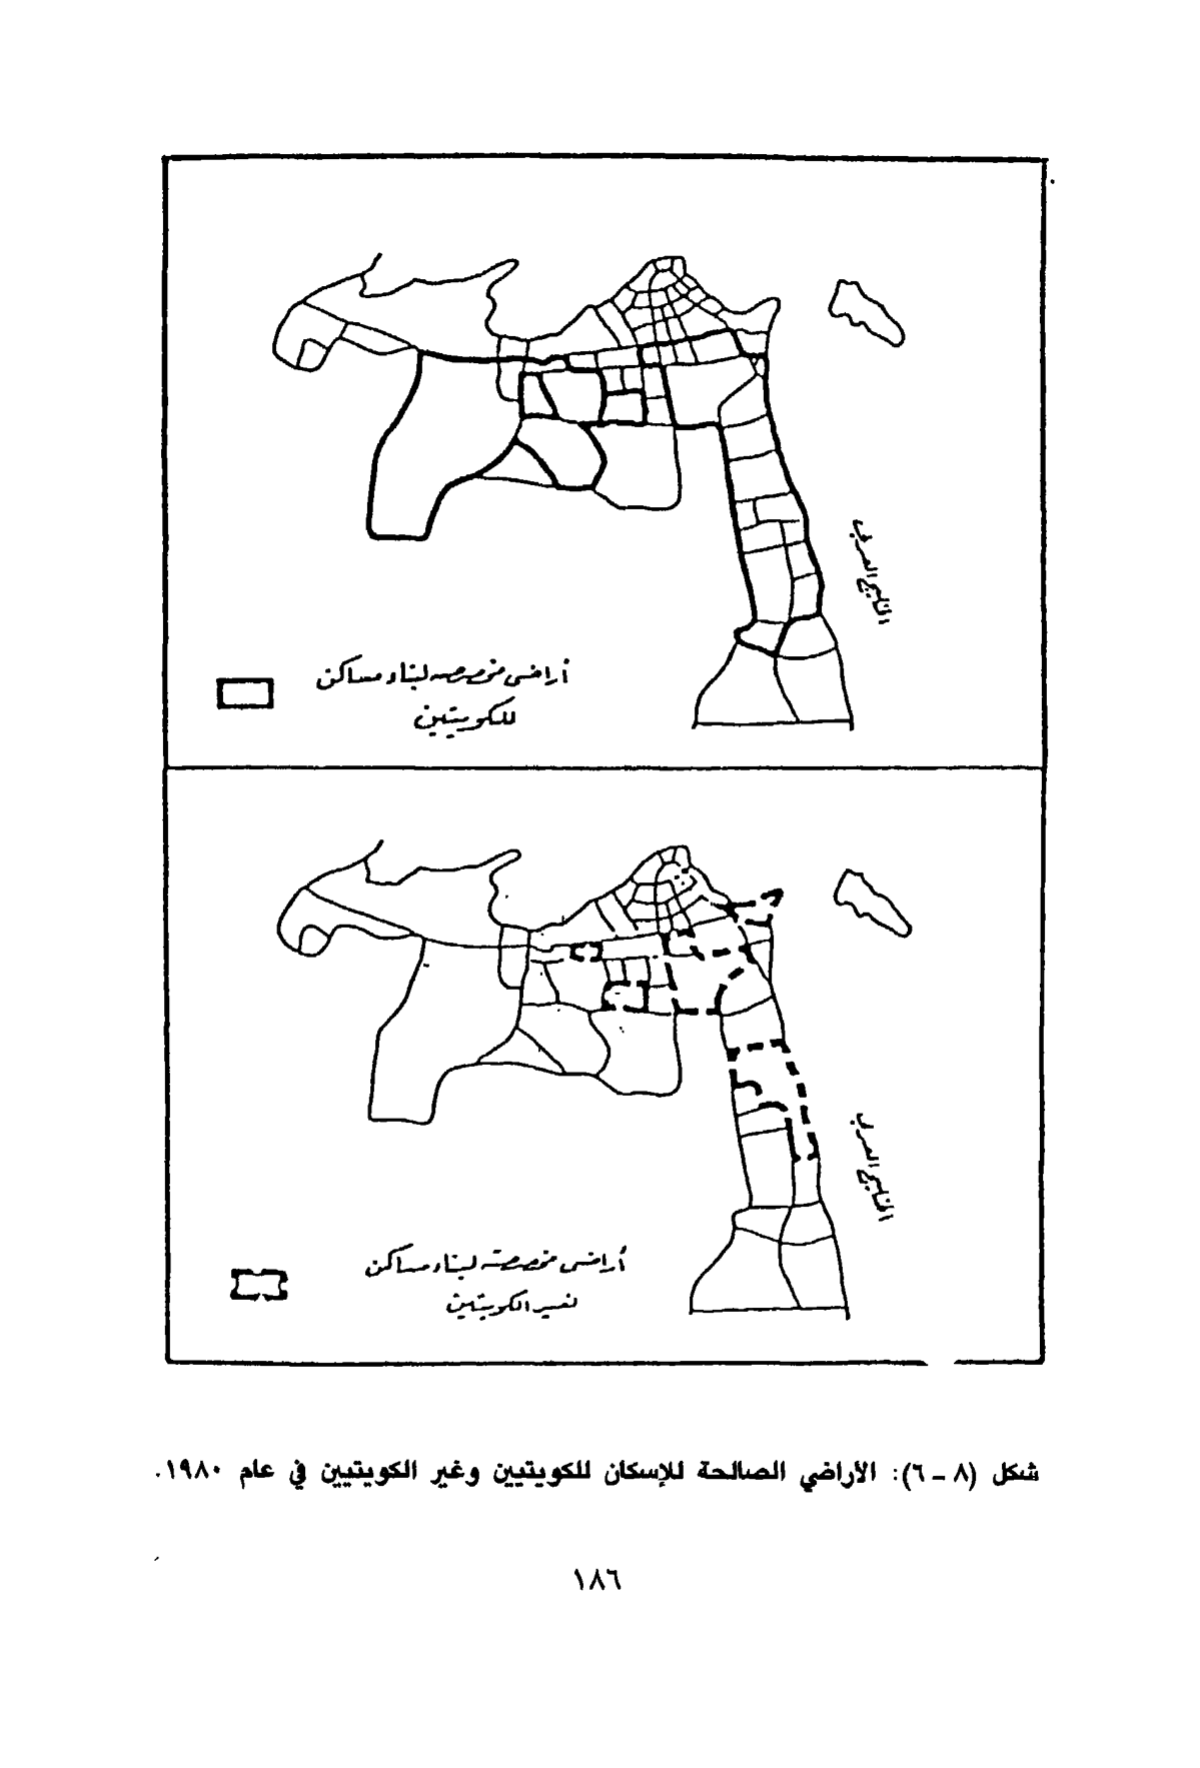 الخليج العربي
أراضي مخصصه لبناء مساكن
للكويتين
الخليج العربي
أراضي مخصصة لبناء مساكن
لغير الكويتين
شكل (٨ - ٦): الأراضي الصالحة للإسكان للكويتيين وغير الكويتيين في عام ١٩٨٠.
١٨٦